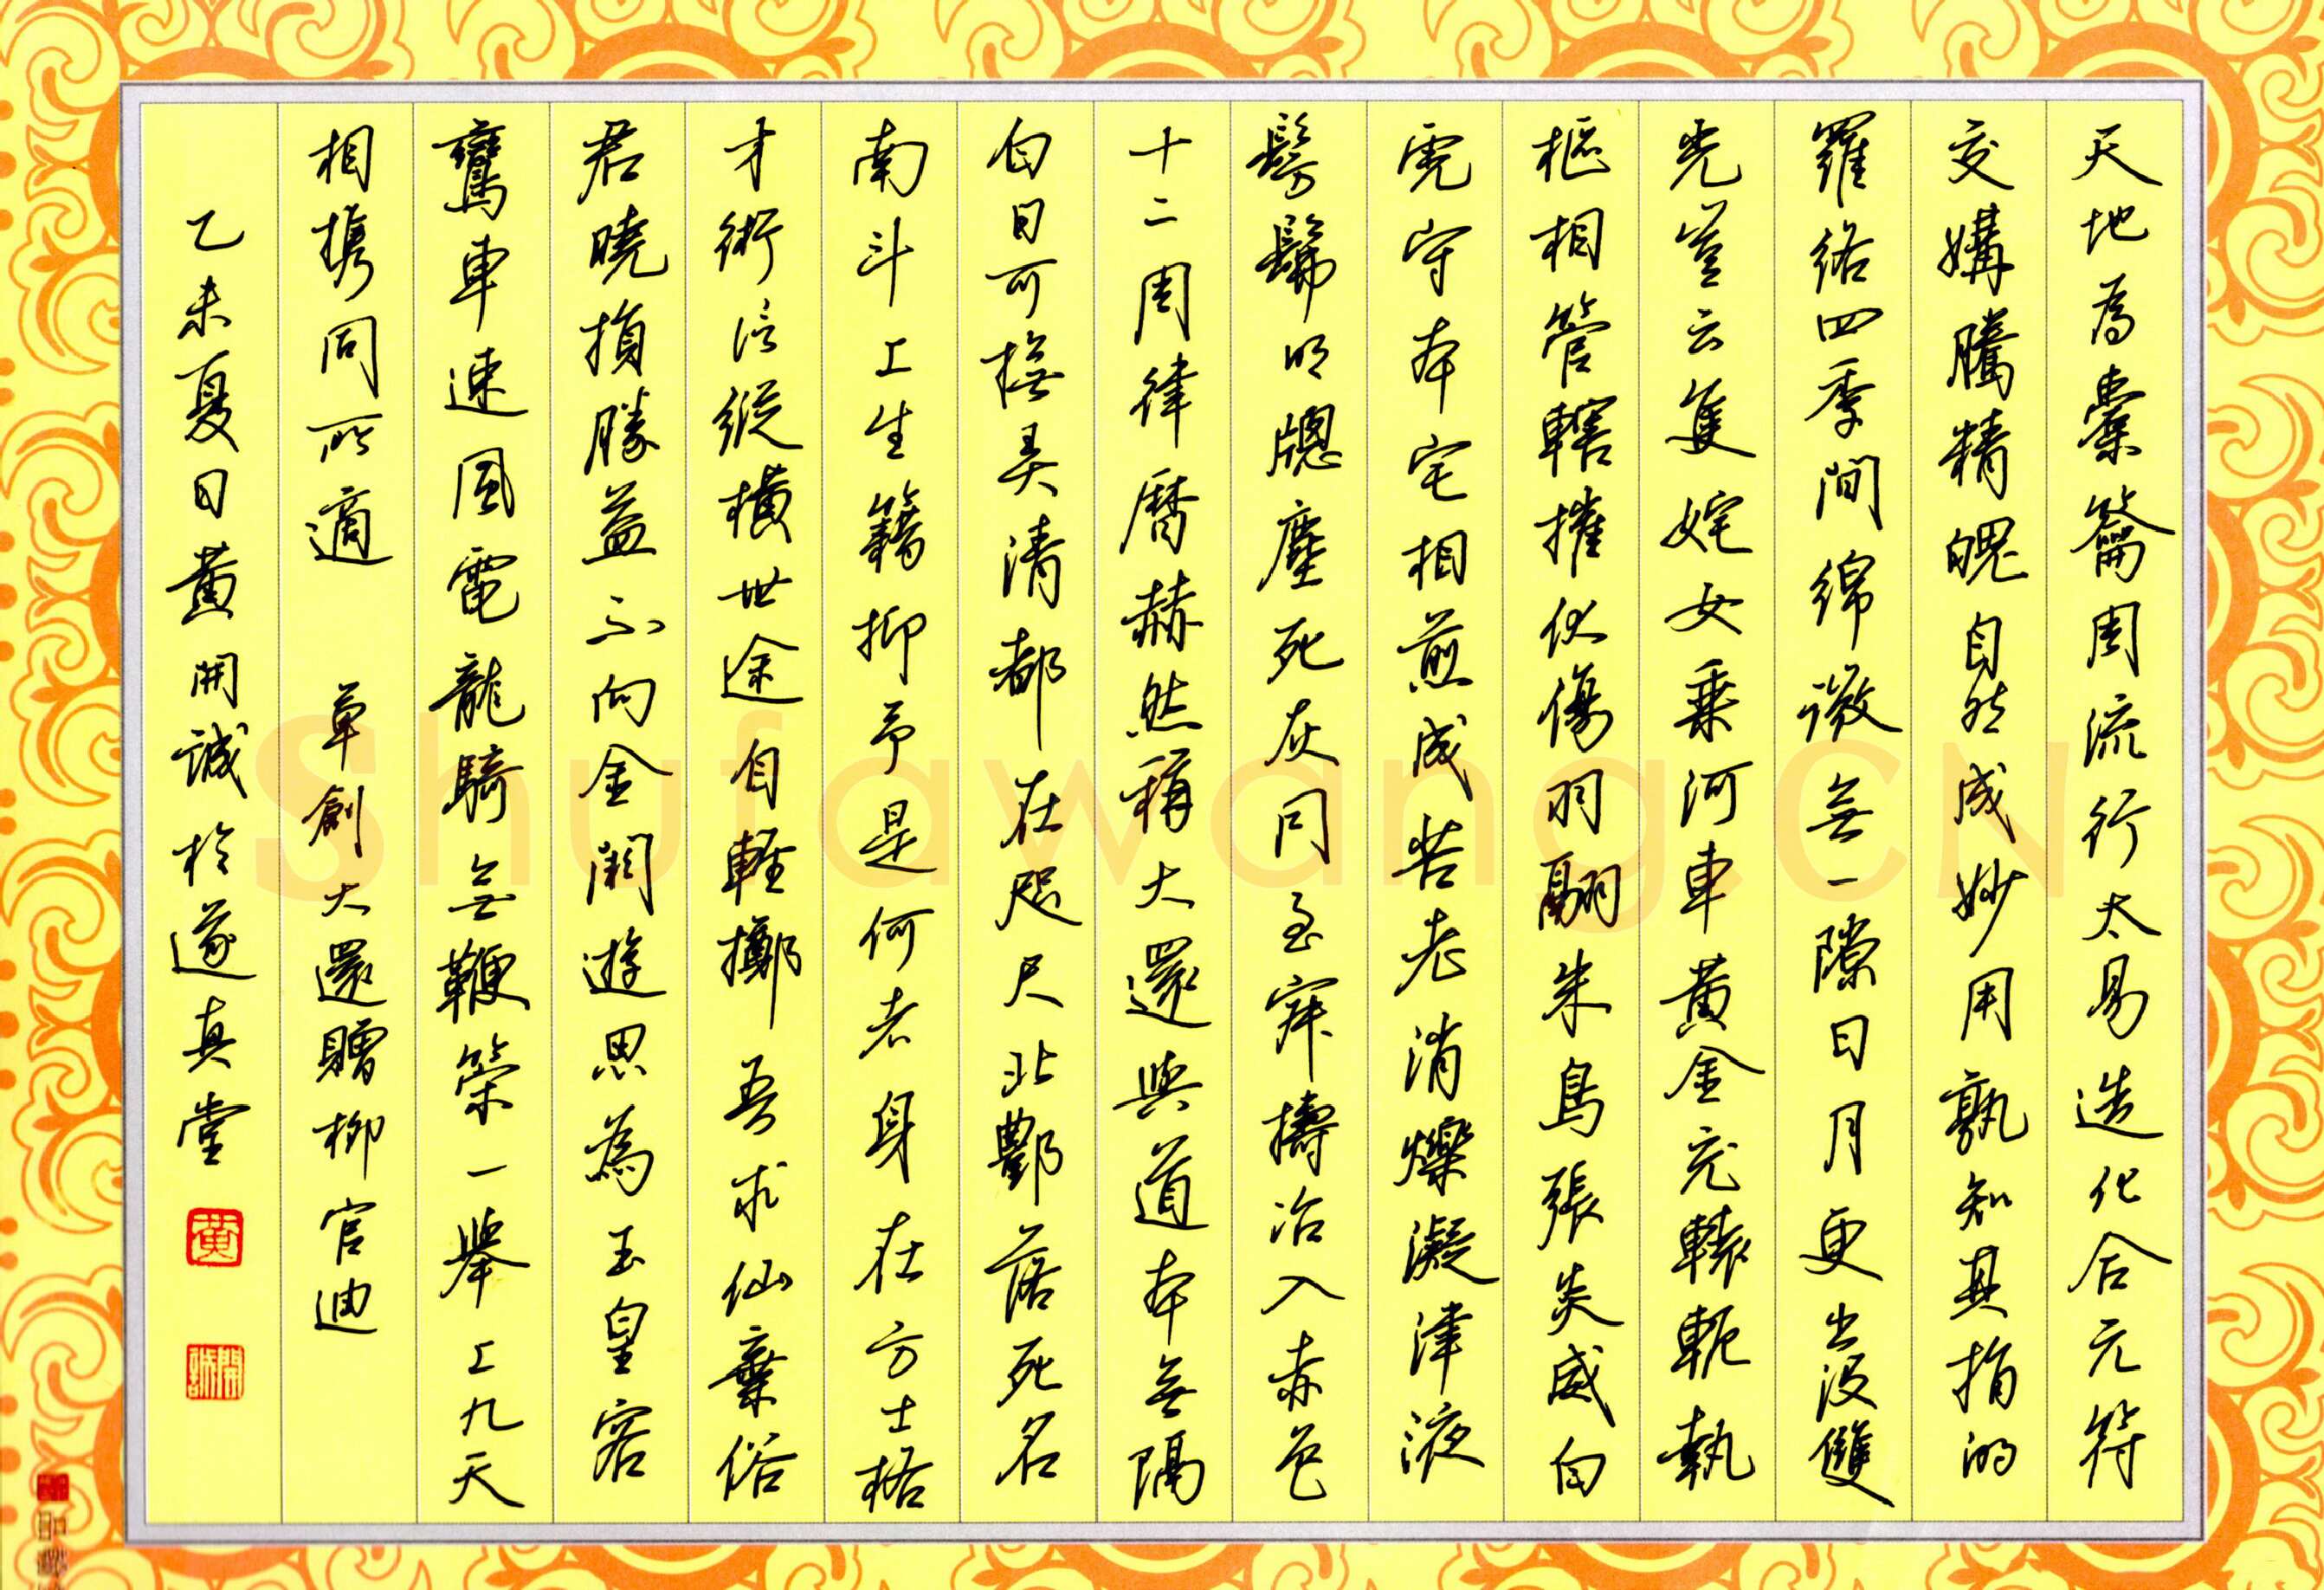 天地為橐籥周流行太易造化合元符
交媾騰精魄自然成妙用孰知其指的
羅絡四季間綿微無一隙日月更出沒雙
光豈云隻姹女乘河車黃金充轅軛執
樞相管轄摧伏傷羽翮朱鳥張炎威白
虎守本宅相煎成苦老消爍凝津液
髣髴明牕塵死灰同至寂擣冶入赤色
十二周律曆赫然稱大還與道本無隔
白日可撫弄清都在咫尺北酆落死名
南斗上生籍抑予是何者身在方士格
才術信縱橫世途自輕擲吾求仙棄俗
君曉損勝益不向金闕遊思為玉皇客
鸞車速風電龍騎無鞭策一舉上九天
相攜同所適 草創大還贈柳官迪
乙未夏日黃開誠於遂真堂
黄
開誠
Shufawang.CN